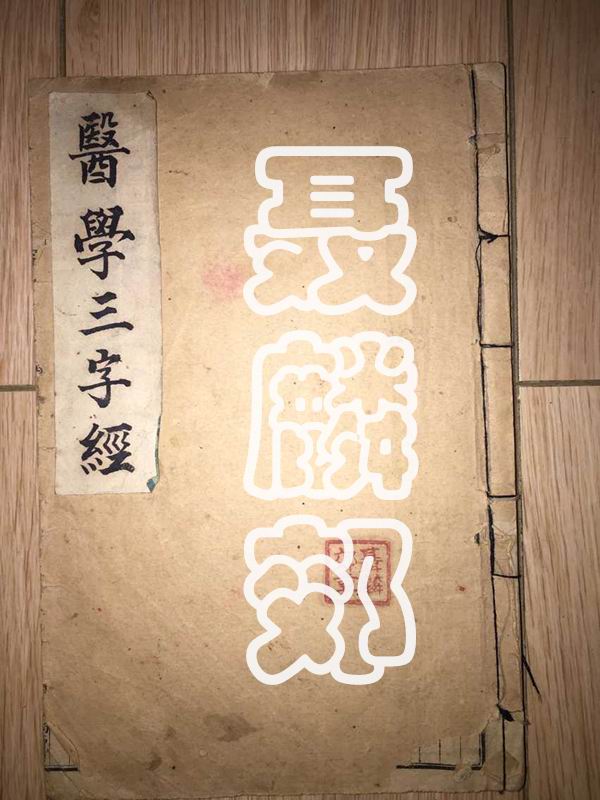 醫學三字經
聂麟郊